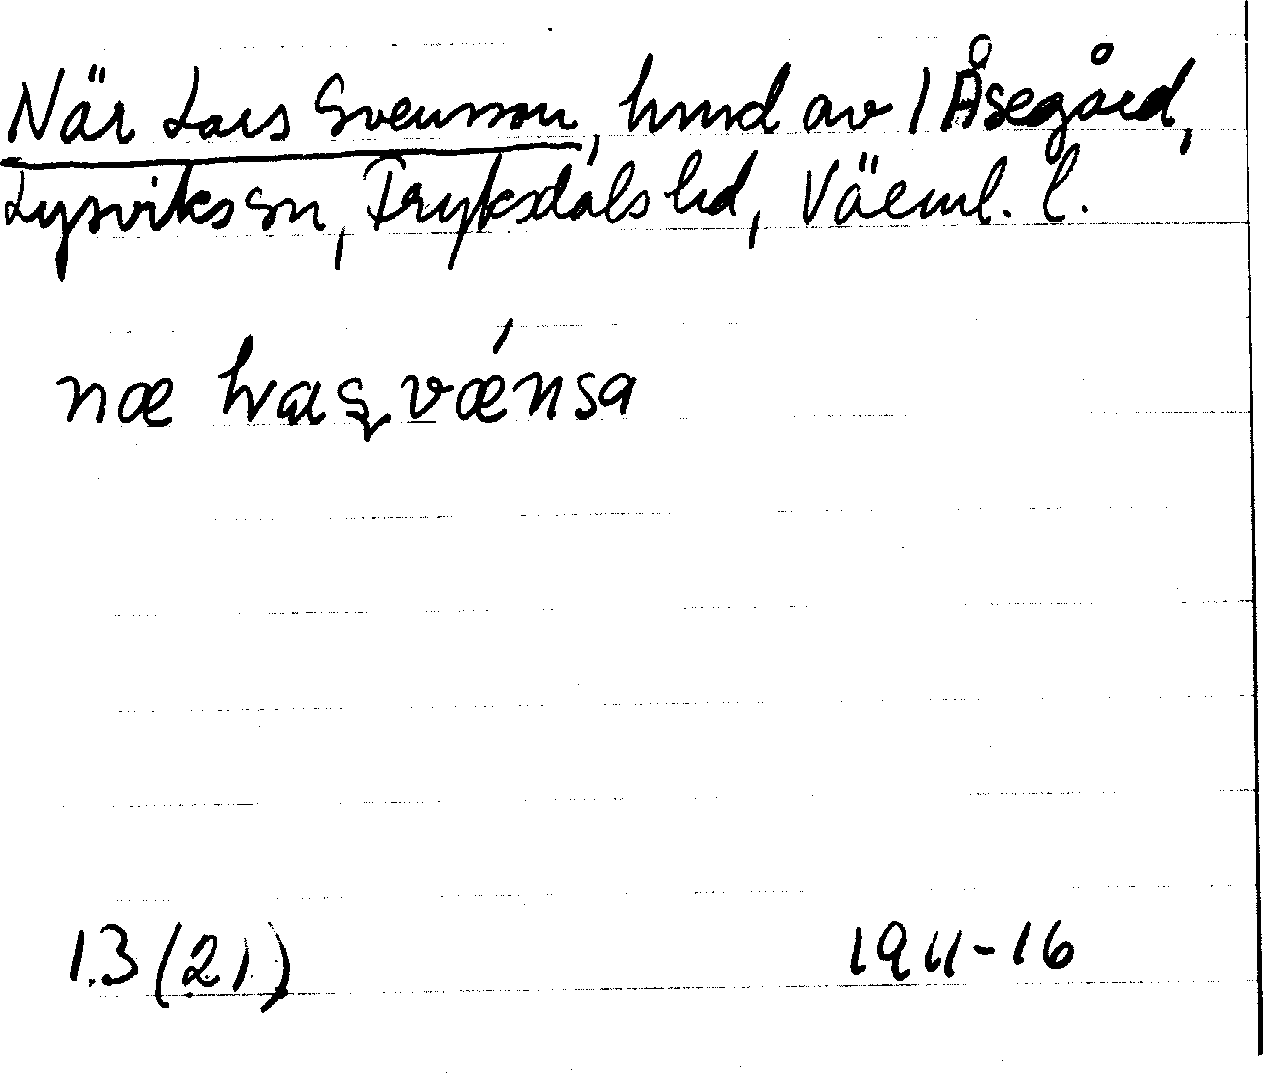 När Lars Svensson, hmd av 1 Åsegård,
Lysviks sn, Fryksdals hd, Värml. l.
næ
13 (21)
1911-16